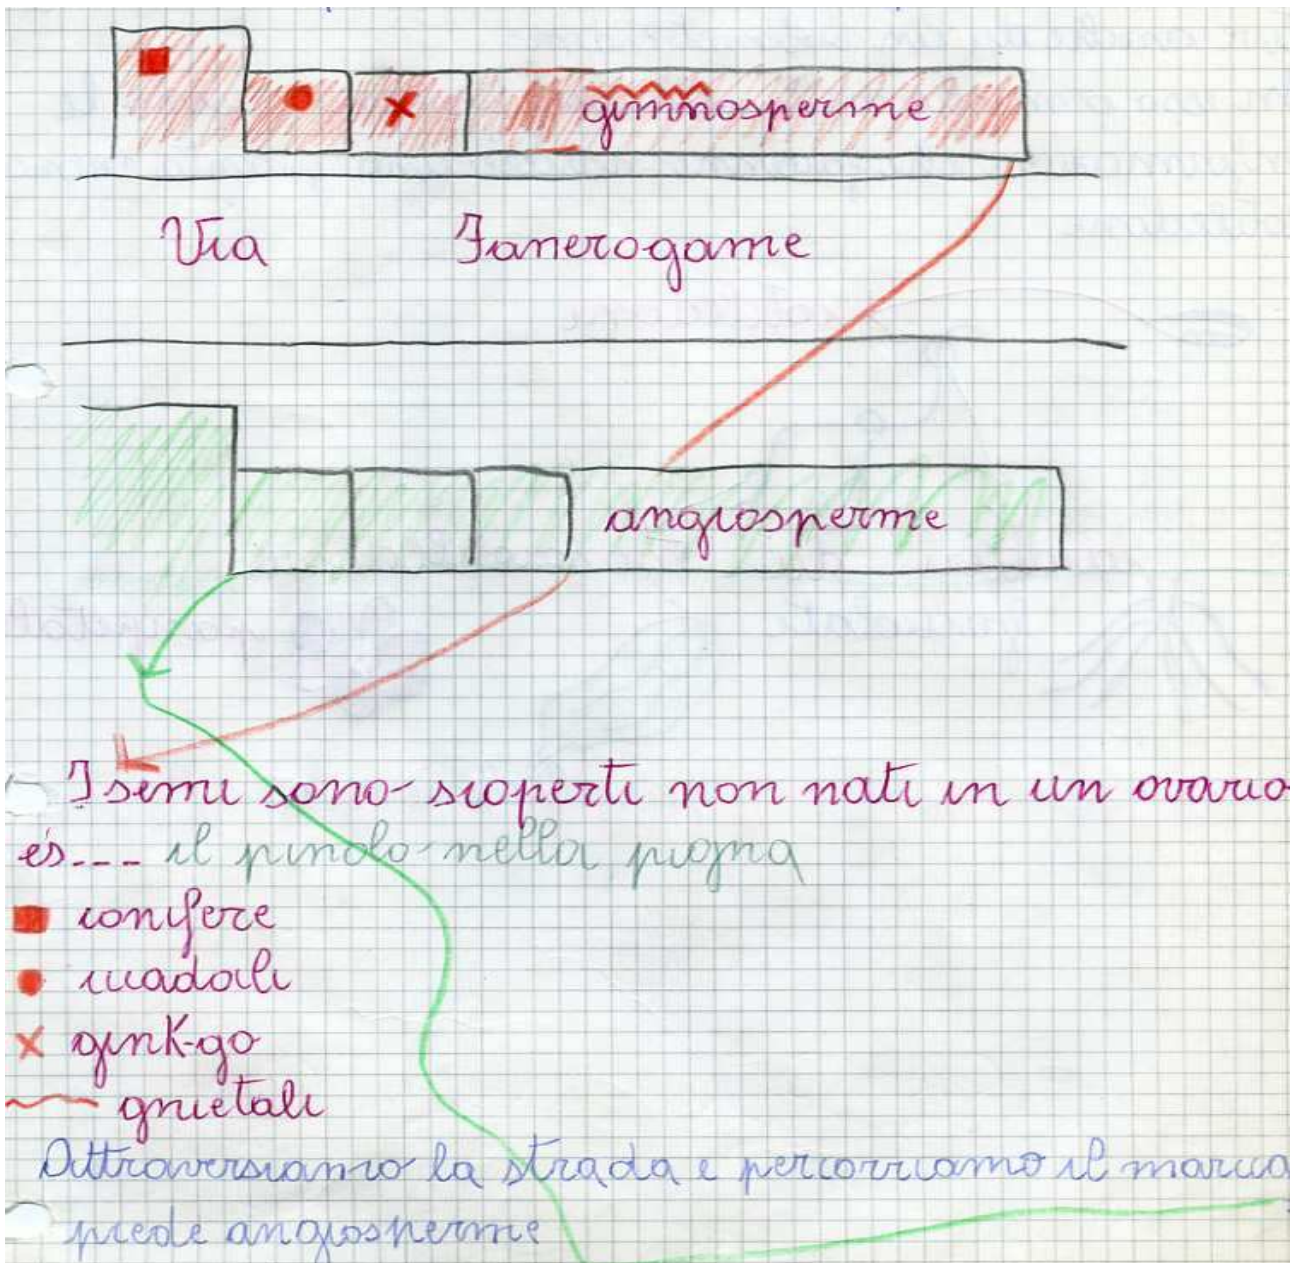 gimnosperme
Via Fanerogame
angiosperme
I semi sono scoperti non nati in un ovario
es--- il pinolo nella pigna
conifere
cicadali
gink-go
gnietali
Attraversiamo la strada e percorriamo il marcia
piede angiosperme